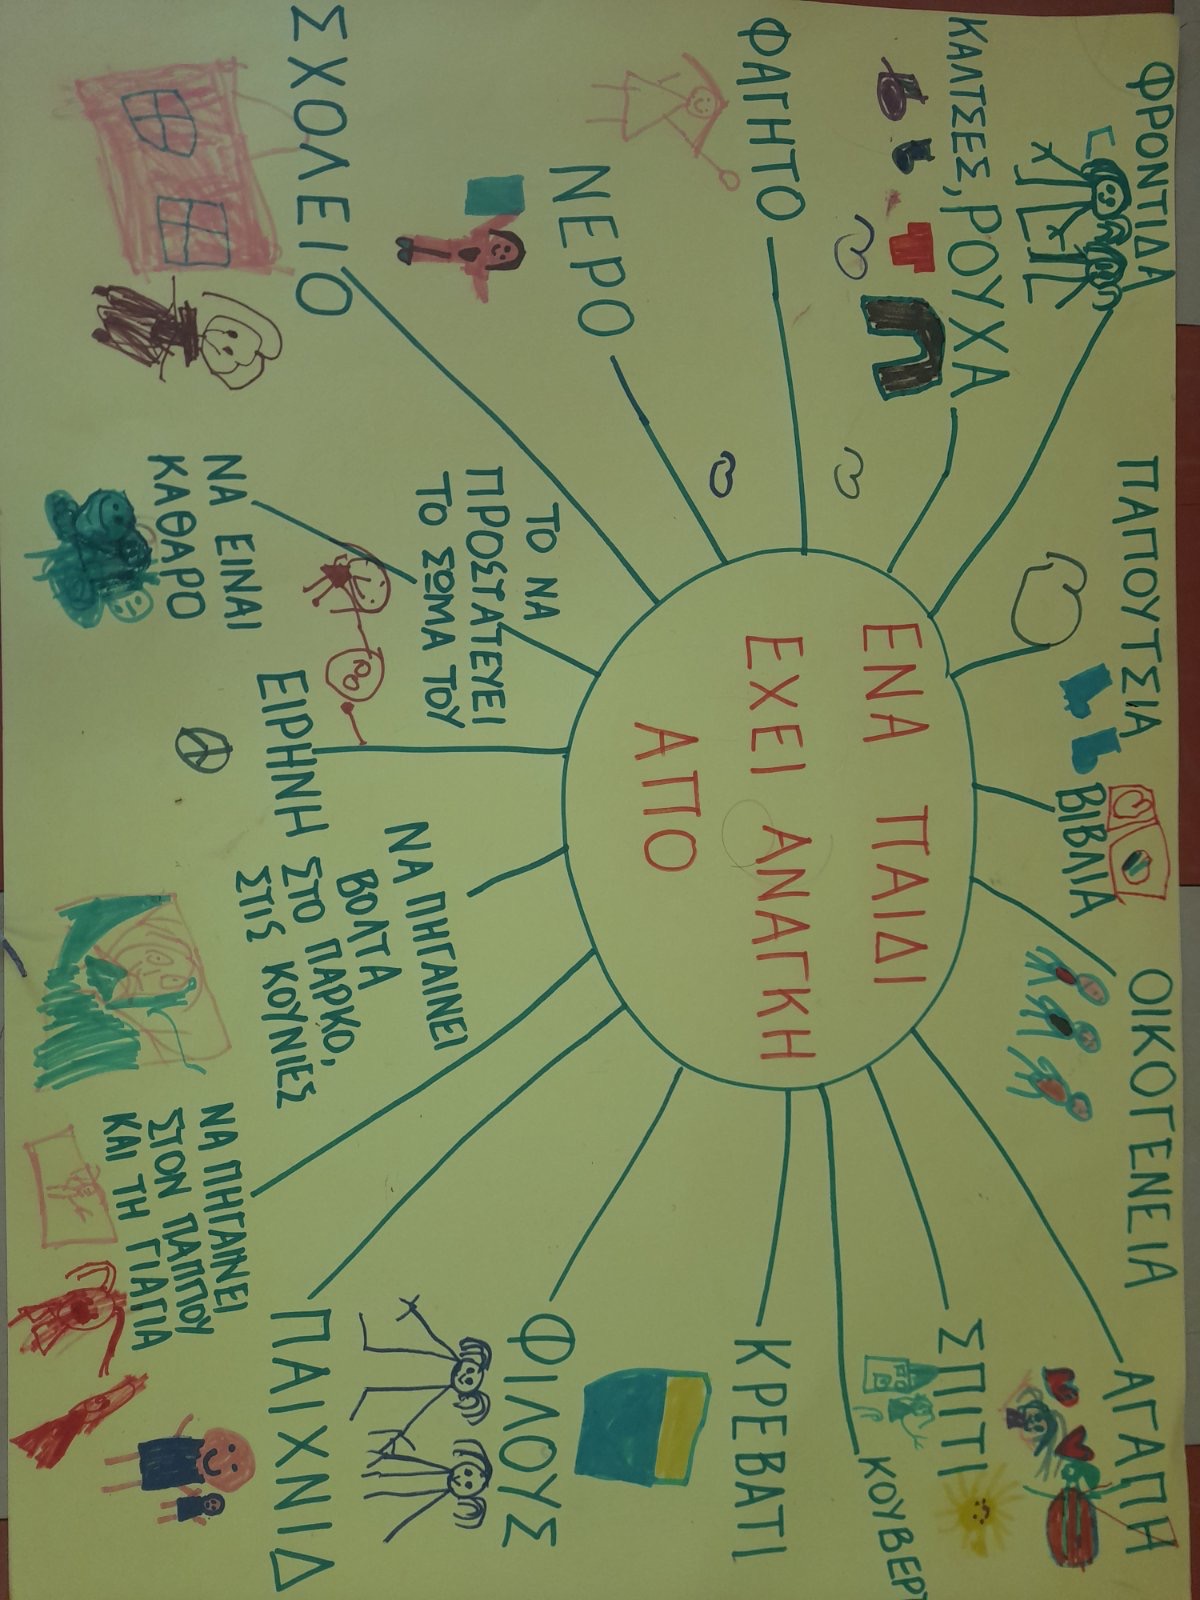 ΦΡΟΝΤΙΔΑ
ΠΑΠΟΥΤΣΙΑ
ΒΙΒΛΙΑ
ΟΙΚΟΓΕΝΕΙΑ
ΑΓΑΠΗ
ΚΑΛΤΣΕΣ, ΡΟΥΧΑ
ΣΠΙΤΙ
ΚΟΥΒΕΡ
ΦΑΓΗΤΟ
ΕΝΑ ΠΑΙΔΙ
ΕΧΕΙ ΑΝΑΓΚΗ
ΑΠΟ
ΚΡΕΒΑΤΙ
ΝΕΡΟ
ΦΙΛΟΥΣ
ΤΟ ΝΑ
ΠΡΟΣΤΑΤΕΥΕΙ
ΤΟ ΣΩΜΑ ΤΟΥ
ΣΧΟΛΕΙΟ
ΝΑ ΕΙΝΑΙ
ΚΑΘΑΡΟ
ΕΙΡΗΝΗ
ΝΑ ΠΗΓΑΙΝΕΙ
ΒΟΛΤΑ
ΣΤΟ ΠΑΡΚΟ,
ΣΤΙΣ ΚΟΥΝΙΕΣ
ΠΑΙΧΝΙΔ
ΝΑ ΠΗΓΑΙΝΕΙ
ΣΤΟΝ ΠΑΠΠΟΥ
ΚΑΙ ΤΗ ΓΙΑΓΙΑ